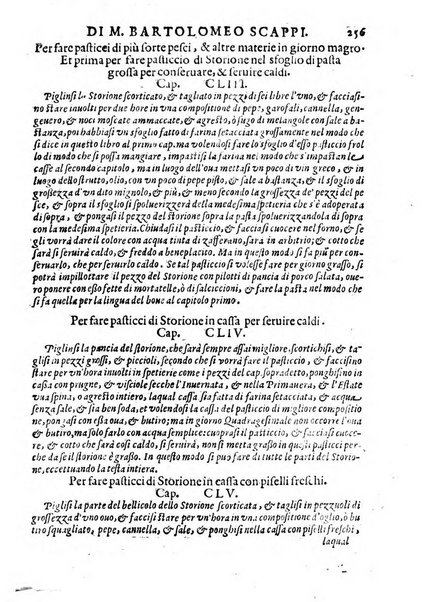 DI M. BARTOLOMEO SCAPPI. 256
Per fare pasticci di più sorte pesci, & altre materie in giorno magro.
Et prima per fare pasticcio di Storione nel sfoglio di pasta
grossa per conseruare, & seruire caldi.
Cap. CLIII.
Piglinsi lo Storione scorticato, & tagliato in pezzi di sei libre l'vno, & facciasi-
no stare per due hore in vna compositione di pepe, garofali, cannella, gen-
geuero, & noci moscate ammaccate, & agresto, ò sugo di melangole con sale a ba-
stanza, poi habbiasi vn sfoglio fatto di farina setacciata grossamente nel modo che
si dice in questo libro al primo cap. ma volendosi fare lo sfoglio d'esso pasticcio frol
lo di modo che si possa mangiare, impastisi la farina nel modo che s'impastan le
casse al secondo capitolo, ma in luogo dell'oua mettasi vn poco di vin greco, & in
luogo dello strutto, olio, con vn poco di pepe pisto, & sale a bastanza, & il sfoglio di
grossezza d'vn dito mignolo, & più, & meno secondo la grossezza del pezzo del pe
sce, & sopra il sfoglio si spoluerizzerà della medesima spetieria che s'è adoperata
di sopra, & pongasi il pezzo del Storione sopra la pasta spoluerizzandola di sopra
con la medesima spetieria. Chiudasi il pasticcio, & facciasi cuocere nel forno, & se
gli vorrà dare il colore con acqua tinta di zafferano, sarà in arbitrio; & cotto che
sarà si seruirà caldo, & freddo a beneplacito. Ma in questo modo si fà più per con-
seruarlo, che per seruirlo caldo. Se tal pasticcio si volesse fare per giorno grasso, si
potrà impillottare il pezzo del Storione con pilotti di panza di porco salata, oue-
ro ponere con essò fette di mortatelle, ò di salsiccioni. & si farà nel modo che
si fa quella per la lingua del boue al capitolo primo.
Per fare pasticci di Storione in cassa per seruire caldi.
Cap. CLIV.
Piglinsi la pancia del storione, che sarà sempre assai migliore, scortichisi, & ta-
glisi in pezzi grossi, & piccioli, secondo che si vorrà fare il pasticcio, & faccisi sta
re per vn'hora inuolti in spetierie come i pezzi del cap. sopradetto, ponghisino in
cassa con prugne, & visciole secche l'Inuernata, & nella Primauera, & l'Estate
vua spina, ò agresto intiero, laqual cassa sia fatta di farina setacciata, & acqua
senza sale, & sia ben soda, et volendosi la cassa del pasticcio di migliore compositio
ne, pongasi con essa, oua, & butiro; ma in giorno Quadragesimale non occorreno
oua, & butiro, ma solo farlo con acqua semplice: cuoprasi il pasticcio, & facciasi cuo
cere, & cotto che sarà così caldo, si seruirà. non s'usa molto grasso in questi pasticci per-
che da se il storione è grasso. In questo modo si può fare di tutte le parti del Storio-
ne, eccettuando la testa intiera.
Per fare pasticci di Storione in cassa con piselli freschi.
Cap. CLV.
Piglisi la parte del bellicolo dello Storione scorticata, & tagisi in pezzuoli di
grossezza d'vno ouo, & faccisi stare per vn'hora in vna compositione d'oglio, ò bu
tiro squagliato, pepe, cannella, & sale, & habbisino piselli freschi sgranati,
laqual